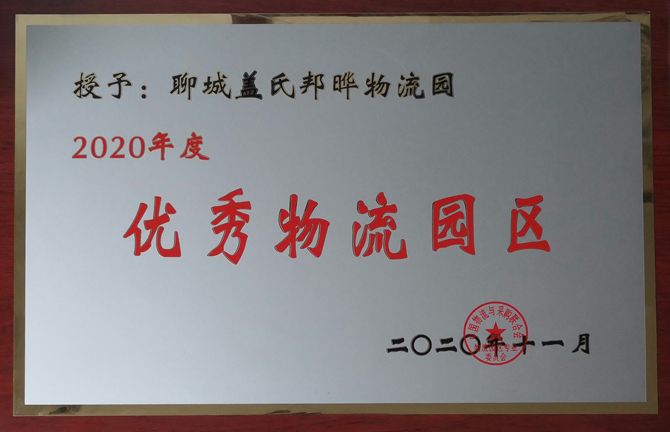 授予：聊城盖氏邦晔物流园
2020年度
优秀物流园区
二〇二〇年十一月
国物流与采购联合会
委员会